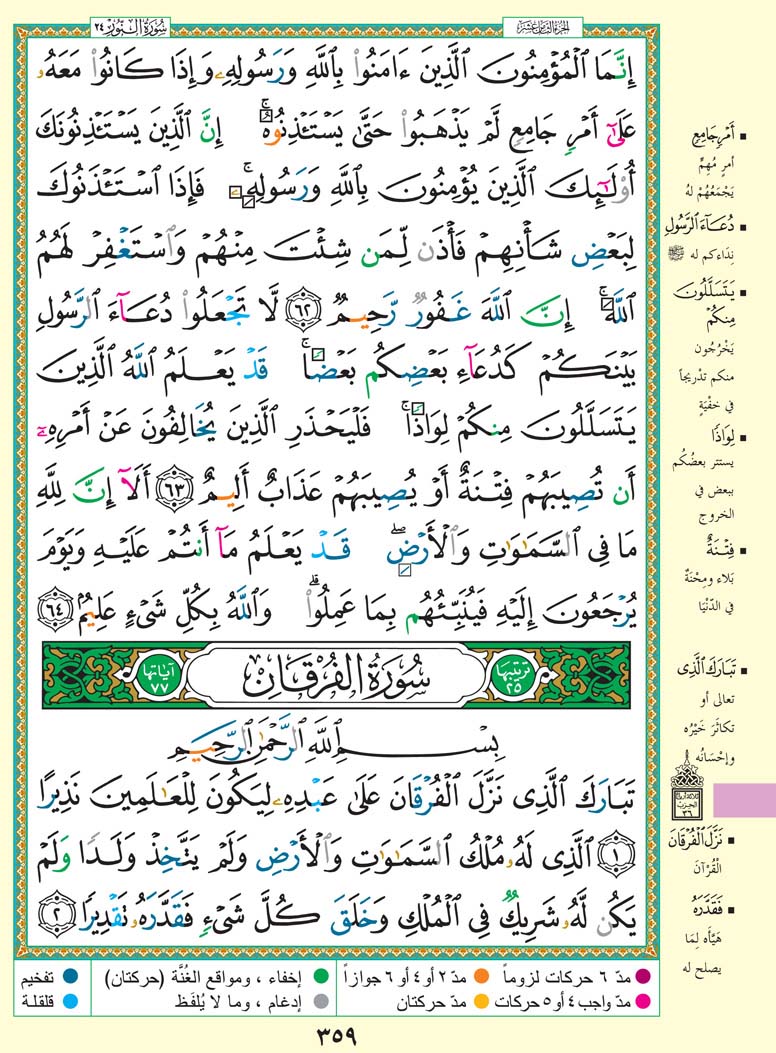 سُورَةُ النُّورِ ٢٤
الجُزءُ الثَّامِنَ عَشَرَ
إِنَّمَا ٱلْمُؤْمِنُونَ ٱلَّذِينَ ءَامَنُوا۟ بِٱللَّهِ وَرَسُولِهِۦ وَإِذَا كَانُوا۟ مَعَهُۥ
عَلَىٰٓ أَمْرٍ جَامِعٍ لَّمْ يَذْهَبُوا۟ حَتَّىٰ يَسْتَـْٔذِنُوهُ ۚ إِنَّ ٱلَّذِينَ يَسْتَـْٔذِنُونَكَ
أُو۟لَـٰٓئِكَ ٱلَّذِينَ يُؤْمِنُونَ بِٱللَّهِ وَرَسُولِهِۦ ۚ فَإِذَا ٱسْتَـْٔذَنُوكَ
لِبَعْضِ شَأْنِهِمْ فَأْذَن لِّمَن شِئْتَ مِنْهُمْ وَٱسْتَغْفِرْ لَهُمُ
ٱللَّهَ ۚ إِنَّ ٱللَّهَ غَفُورٌ رَّحِيمٌ ٦٢ لَّا تَجْعَلُوا۟ دُعَآءَ ٱلرَّسُولِ
بَيْنَكُمْ كَدُعَآءِ بَعْضِكُم بَعْضًا ۚ قَدْ يَعْلَمُ ٱللَّهُ ٱلَّذِينَ
يَتَسَلَّلُونَ مِنكُمْ لِوَاذًا ۚ فَلْيَحْذَرِ ٱلَّذِينَ يُخَالِفُونَ عَنْ أَمْرِهِۦٓ
أَن تُصِيبَهُمْ فِتْنَةٌ أَوْ يُصِيبَهُمْ عَذَابٌ أَلِيمٌ ٦٣ أَلَآ إِنَّ لِلَّهِ
مَا فِى ٱلسَّمَـٰوَٰتِ وَٱلْأَرْضِ ۖ قَدْ يَعْلَمُ مَآ أَنتُمْ عَلَيْهِ وَيَوْمَ
يُرْجَعُونَ إِلَيْهِ فَيُنَبِّئُهُم بِمَا عَمِلُوا۟ ۗ وَٱللَّهُ بِكُلِّ شَىْءٍ عَلِيمٌۢ ٦٤
ترتيبها ٢٥
سُورَةُ الفُرْقَانِ
آياتها ٧٧
بِسْمِ ٱللَّهِ ٱلرَّحْمَـٰنِ ٱلرَّحِيمِ
تَبَارَكَ ٱلَّذِى نَزَّلَ ٱلْفُرْقَانَ عَلَىٰ عَبْدِهِۦ لِيَكُونَ لِلْعَـٰلَمِينَ نَذِيرًا
١ ٱلَّذِى لَهُۥ مُلْكُ ٱلسَّمَـٰوَٰتِ وَٱلْأَرْضِ وَلَمْ يَتَّخِذْ وَلَدًا وَلَمْ
يَكُن لَّهُۥ شَرِيكٌ فِى ٱلْمُلْكِ وَخَلَقَ كُلَّ شَىْءٍ فَقَدَّرَهُۥ تَقْدِيرًا ٢
أَمْرٍ جَامِعٍ
أمرٍ مُهِمٍّ
يَجْمَعُهُمْ لَهُ
دُعَآءَ الرَّسُولِ
نِدَاءَكم له ﷺ
يَتَسَلَّلُونَ
مِنكُمْ
يَخْرُجُون
منكم تَدْريجاً
في خفْيَةٍ
لِوَاذًا
يستتر بعضُكُم
ببعض في
الخروج
فِتْنَةٌ
بَلاء ومِحْنَةٌ
في الدّنْيَا
تَبَارَكَ الَّذِى
تعالى أو
تكاثَرَ خَيْرُه
وإحْسَانُه
الحزب
٣٦
نَزَّلَ الْفُرْقَانَ
القُرْآنَ
فَقَدَّرَهُ
هَيَّأه لِمَا
يصلح له
مدّ ٦ حركات لزوماً
مدّ ٢ أو ٤ أو ٦ جوازاً
إخفاء ، ومواقع الغُنَّة (حركتان)
تفخيم
مدّ واجب ٤ أو ٥ حركات
مدّ حركتان
إدغام ، وما لا يُلفَظ
قلقلة
٣٥٩